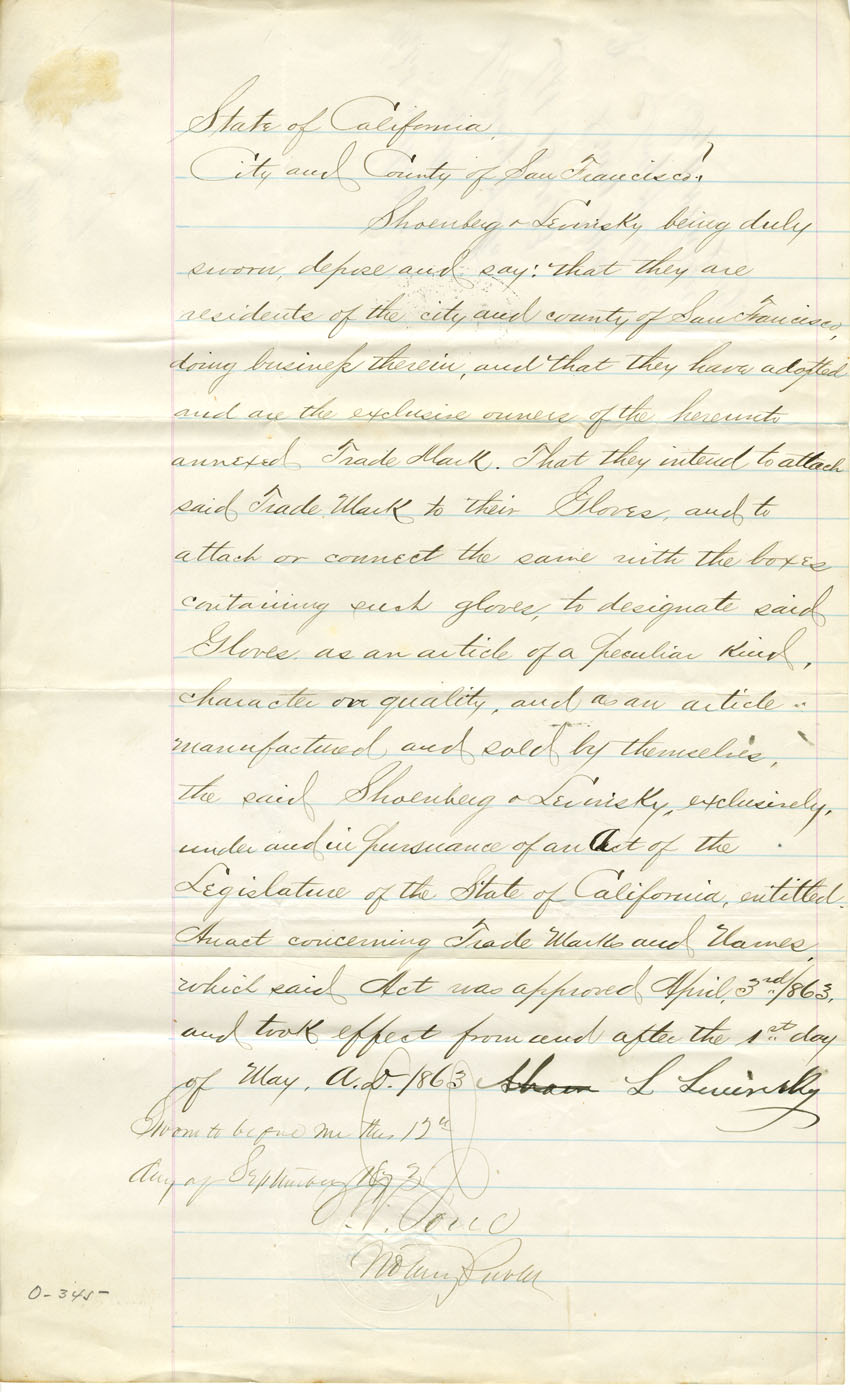 State of California
City and County of San Francisco.
Shoenberg & Levinsky being duly
sworn, depose and say: that they are
residents of the city and county of San Francisco,
doing business therein, and that they have adopted
and are the exclusive owners of the hereunto
annexed Trade Mark. That they intend to attach
said Trade Mark to their Gloves, and to
attach or connect the same with the boxes
containing such gloves, to designate said
Gloves as an article of a peculiar kind,
character or quality, and as an article
manufactured and sold by themselves,
the said Shoenberg & Levinsky, exclusively,
under and in pursuance of an Act of the
Legislature of the State of California, entitled.
An act concerning Trade Marks and Names,
which said Act was approved April, 3rd, 1863,
and took effect from and after the 1st day
of May, A.D. 1863 L Levinsky
Sworn to before me this 12th
day of September
Notary Public
O-345-